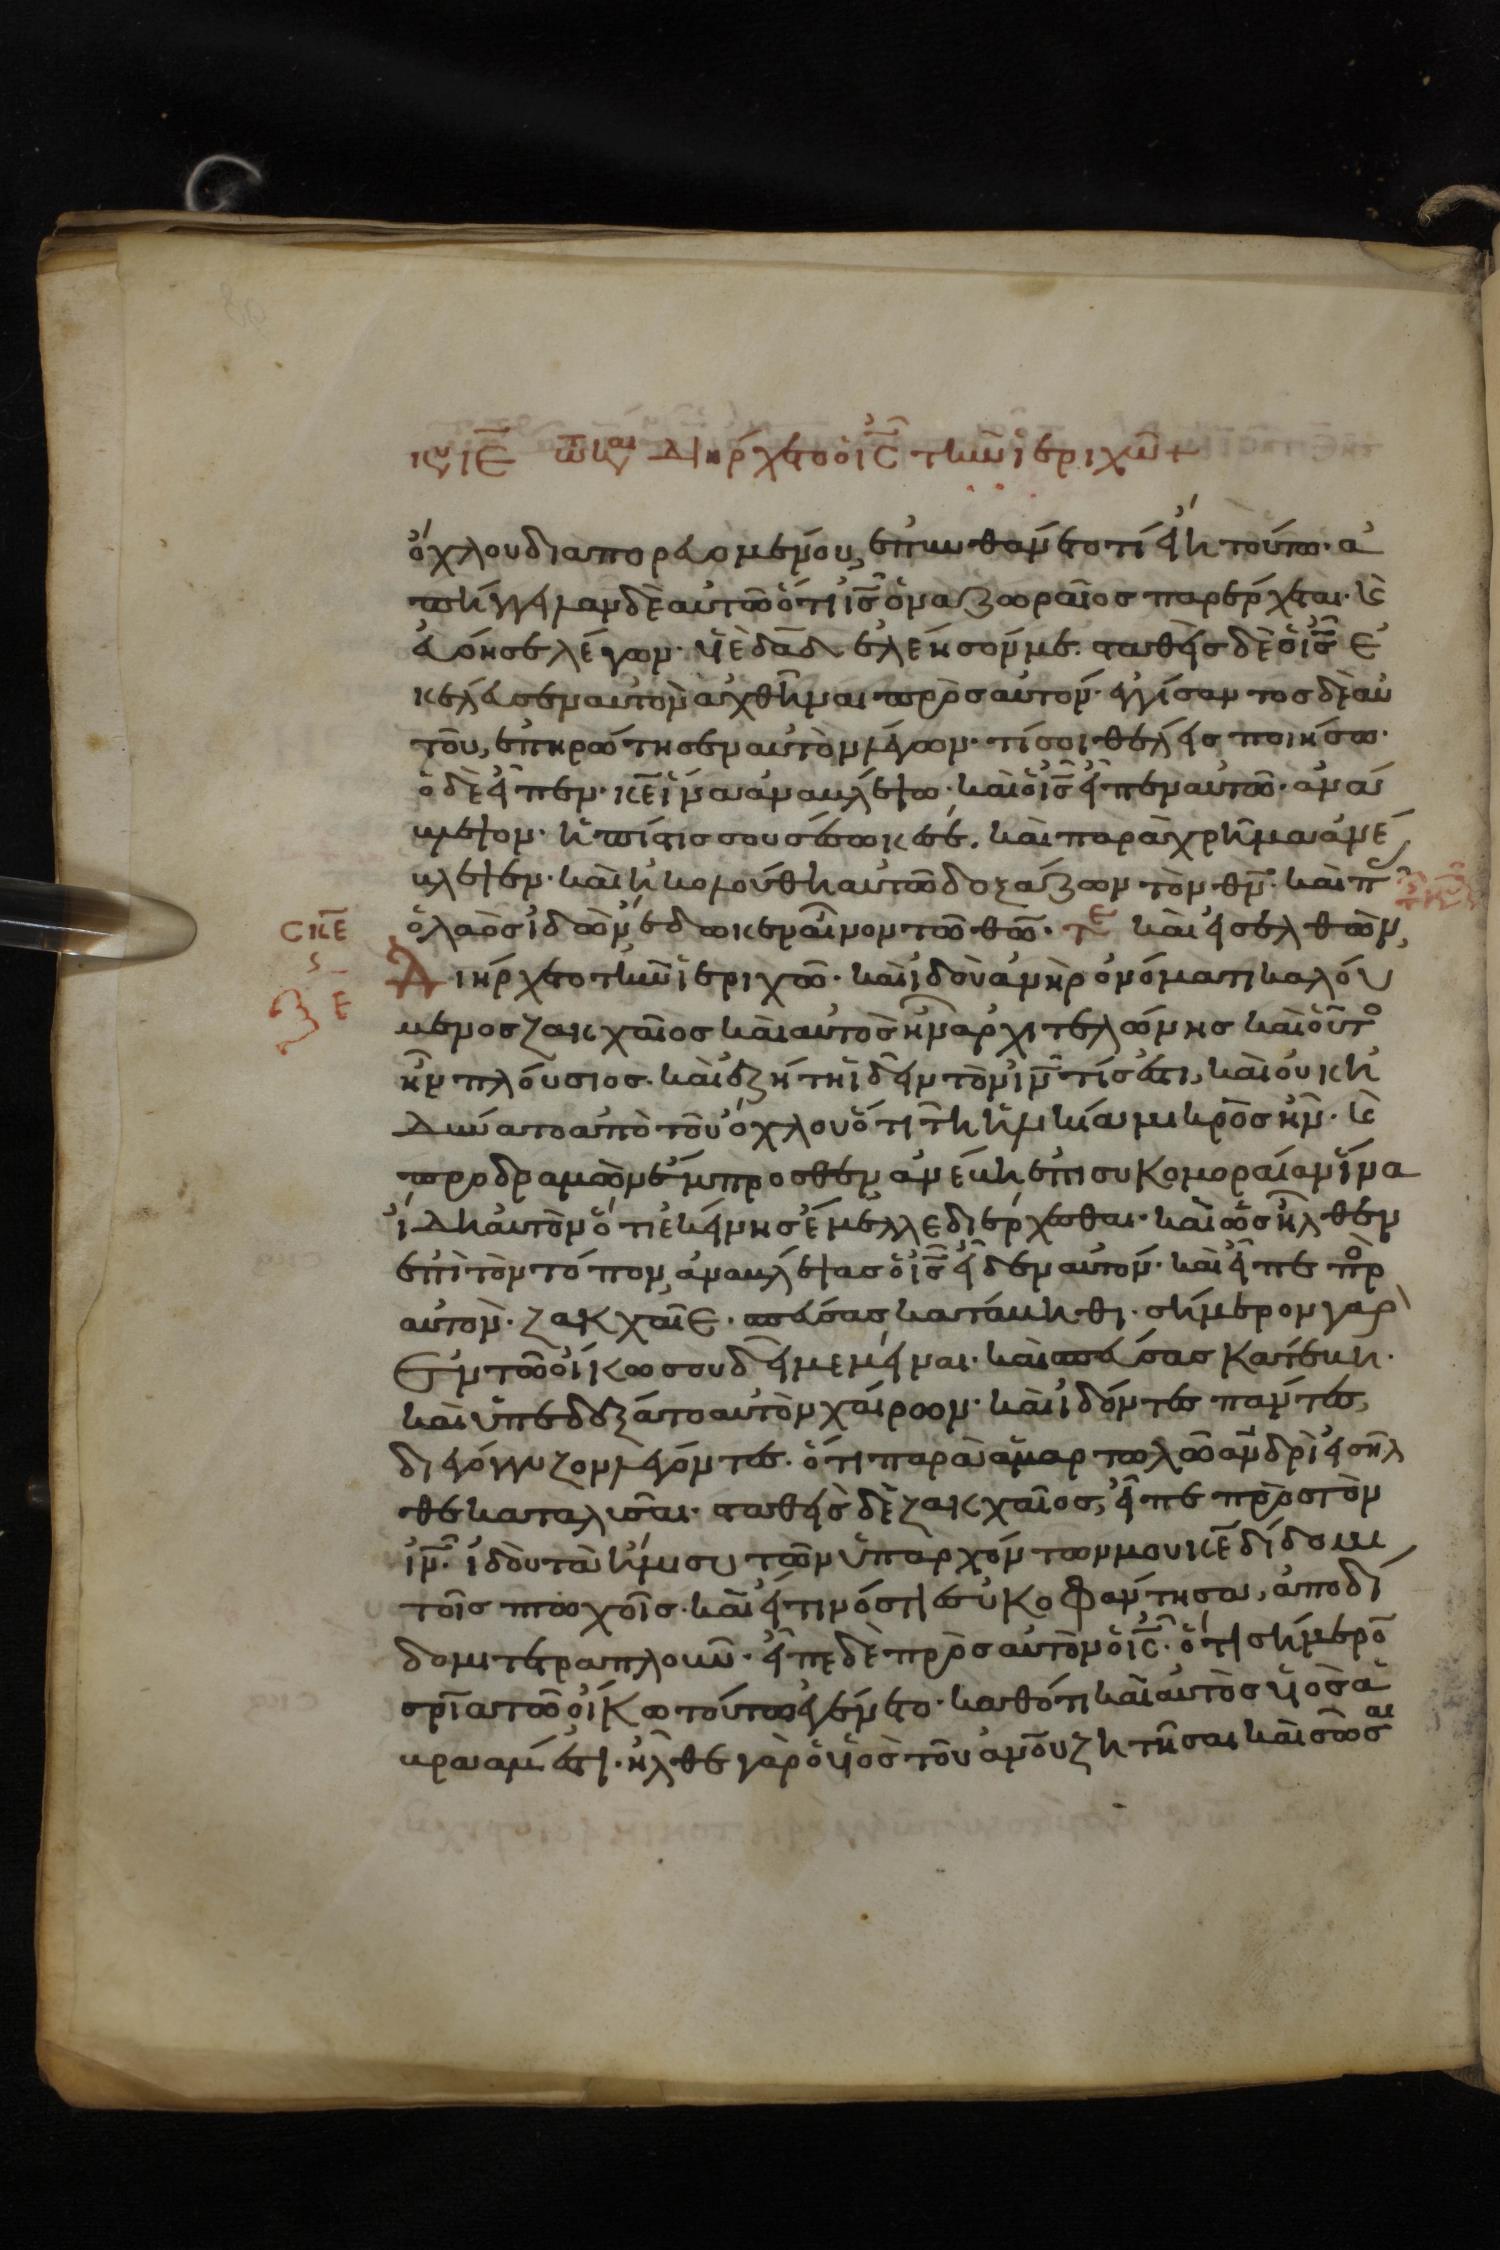 κυ ΙΕ τω κ διήρχετο ὁ ις τὴν ἱεριχῶ +
ὄχλου διαπορευομένου, ἐπυνθάνετο τί εἴη τοῦτο· ἀ
πήγγειλαν δὲ αὐτῶ ὅτι ις ὁ ναζωραῖος παρέρχεται· καὶ
ἐβόησε λέγων· υἱὲ δαδ ἐλέησόν με. σταθεὶς δὲ ὁ ις ἐ
κέλευσεν αὐτὸν ἀχθῆναι πρὸς αὐτόν· ἐγγίσαντος δὲ αὐ
τοῦ, ἐπηρώτησεν αὐτὸν λέγων· τί σοι θέλεις ποιήσω·
ὁ δὲ εἶπεν· κε ἵνα ἀναβλέψω· καὶ ὁ ις εἶπεν αὐτῶ· ἀνά
βλεψον· ἡ πίστις σου σέσωκέ σε. καὶ παραχρῆμα ἀνέ
βλεψεν· καὶ ἠκολούθη αὐτῶ δοξάζων τὸν θν· καὶ π
ὁ λαὸς ἰδὼν ἔδωκεν αἶνον τῶ θω. τε καὶ εἰσελθὼν
ΣΚΕ
Διήρχετο τὴν ἱεριχῶ· καὶ ἰδοὺ ἀνὴρ ὀνόματι καλού
μενος ζακχαῖος καὶ αὐτὸς ἦν ἀρχιτελώνης καὶ οὗτο
ἦν πλούσιος· καὶ ἐζήτει ἰδεῖν τὸν ιν τίς ἐστι, καὶ οὐκ ἠ
δύνατο ἀπὸ τοῦ ὄχλου ὅτι τῆ ἡλικία μικρὸς ἦν· καὶ
προδραμὼν ἔμπροσθεν ἀνέβη ἐπι συκομοραίαν ἵνα
ἴδη αὐτὸν ὅτι ἐκείνης ἔμελλε διέρχεσθαι· καὶ ὡς ἦλθεν
ἐπὶ τὸν τόπον, ἀναβλέψας ὁ ις εἶδεν αὐτόν· καὶ εἶπε πρ
αὐτόν· ζακχαῖε· σπεύσας κατάβηθι· σήμερον γαρ
ἐν τῶ οἴκω σου δεῖ με μεῖναι· καὶ σπεύσας κατέβη·
καὶ ὑπεδέξατο αὐτὸν χαίρων· καὶ ἰδόντες πάντες,
διεγόγγυζον λέγοντες· ὅτι παρὰ ἁμαρτωλῶ ἀνδρὶ εἰσῆλ
θε καταλῦσαι· σταθεὶς δὲ ζακχαῖος, εἶπε πρὸς τὸν
ιν· ἰδοὺ τὰ ἡμισυ τῶν ὑπαρχόντων μου κε δίδωμι
τοῖς πτωχοῖς· καὶ εἴ τινός τι ἐσυκοφάντησα, ἀποδί
δωμι τετραπλοῦν· εἶπε δὲ πρὸς αὐτὸν ὁ ις· ὅτι σήμερο
σρία τῶ οἴκω τούτω ἐγένετο· καθότι καὶ αὐτὸς υἱὸς ἀ
βραάμ ἐστι· ἦλθε γὰρ ὁ υἱὸς τοῦ ανου ζητῆσαι καὶ σῶσαι